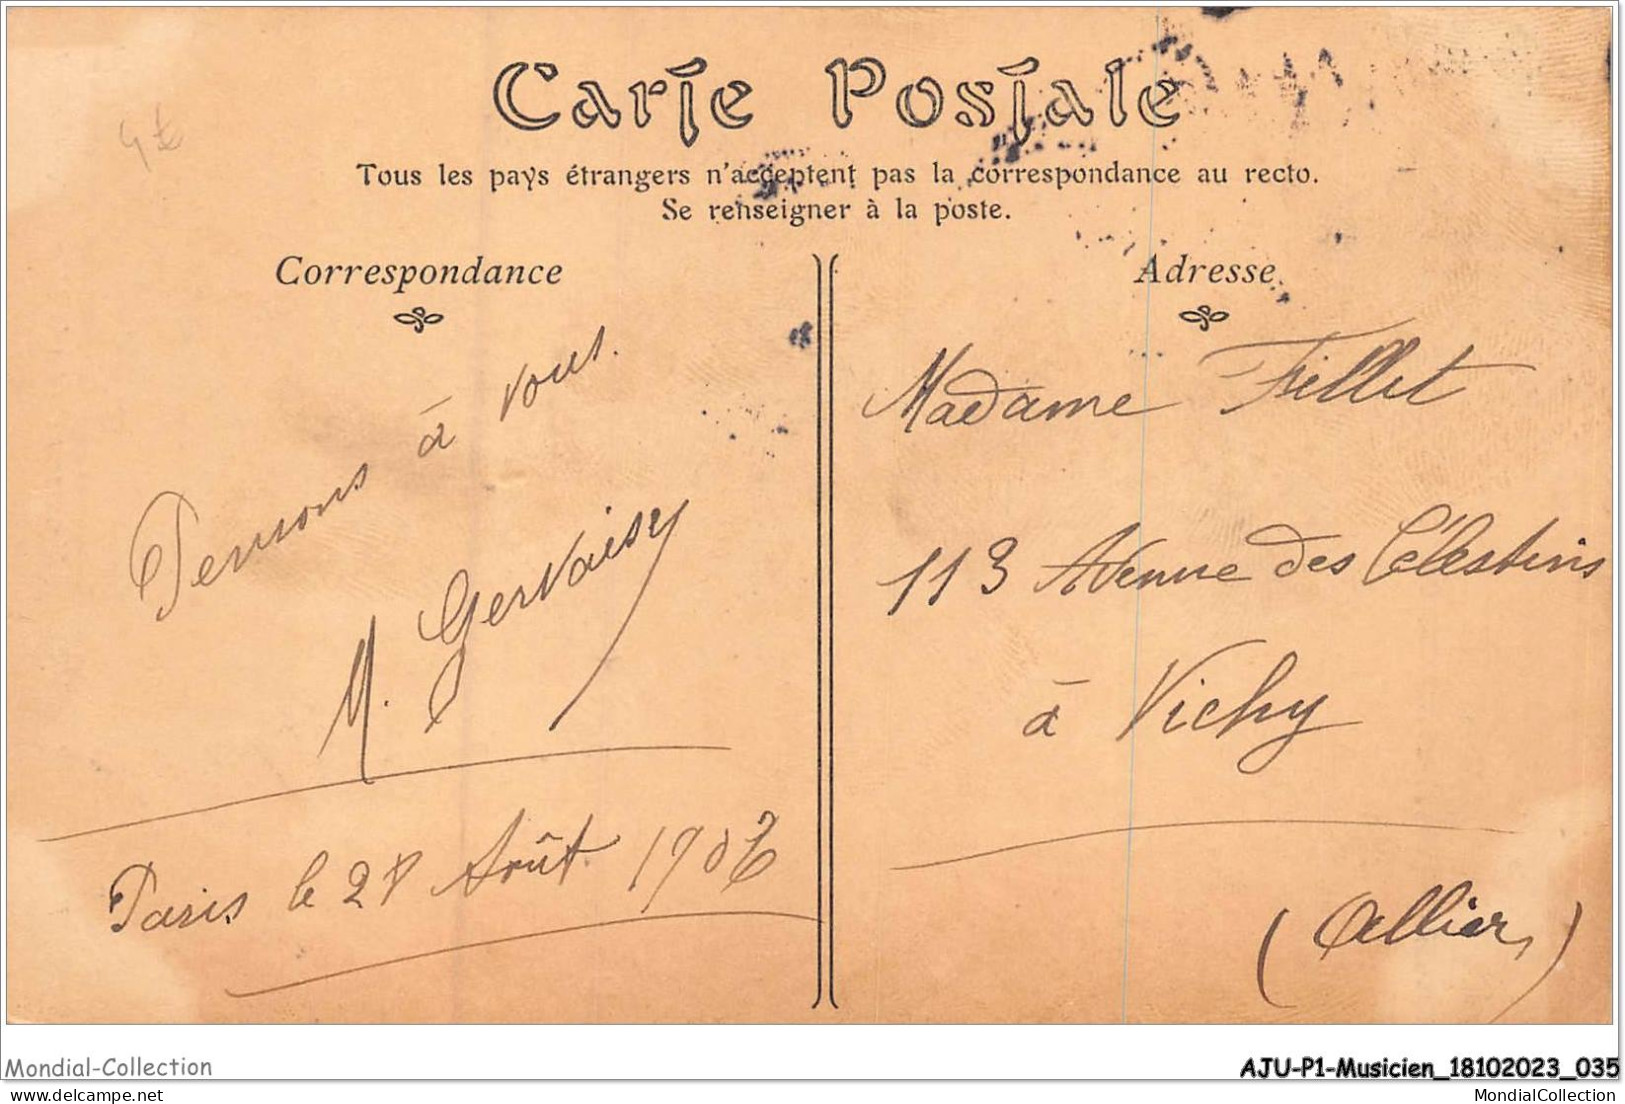 Carte Postale
Tous les pays étrangers n'acceptent pas la correspondance au recto.
Se renseigner à la poste.
Correspondance
Adresse
Pensons à vous.
M. Gervaisy
Paris le 28 Août
Madame Fillet
113 Avenue des Célestins
à Vichy
(Allier)
Mondial-Collection
AJU-P1-Musicien_18102023_035
delcampe.net
MondialCollection